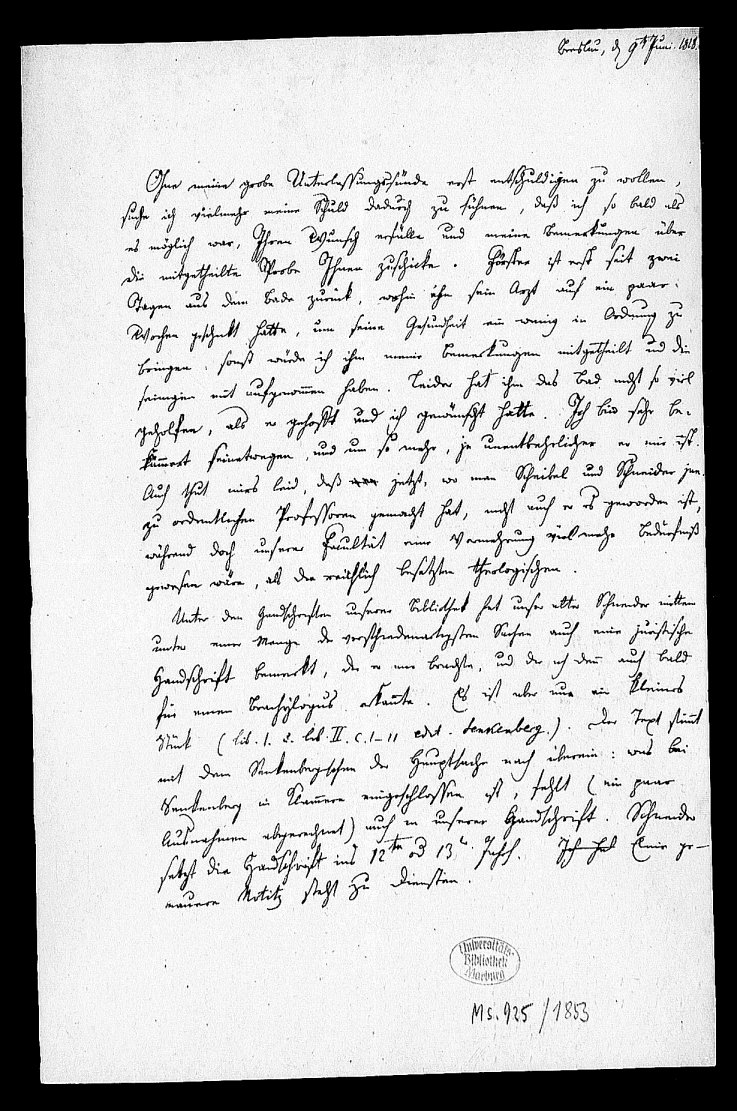 Breslau, d 9t Juni. 1818.
Ohne meine grobe Unterlassungssünde erst entschuldigen zu wollen,
suche ich vielmehr meine Schuld dadurch zu sühnen, daß ich so bald als
es möglich war, Ihren Wunsch erfülle und meine Bemerkungen über
die mitgetheilte Probe Ihnen zuschicke. Förster ist erst seit zwei
Tagen aus dem Bade zurück, wohin ihn sein Arzt auf ein paar
Wochen geschickt hatte, um seine Gesundheit ein wenig in Ordnung zu
bringen: sonst würde ich ihm meine Bemerkungen mitgetheilt und die
seinigen mit aufgenommen haben. Leider hat ihm das Bad nicht so viel
geholfen, als er gehofft und ich gewünscht hatte. Ich bin sehr be-
kümmert seinetwegen, und um so mehr, je unentbehrlicher er mir ist.
Auch thut mirs leid, daß jetzt, wo man Scheibel und Schneider jun.
zu ordentlichen Professoren gemacht hat, nicht auch er es geworden ist,
während doch unserer Facultät eine Vermehrung viel mehr Bedürfniß
gewesen wäre, als der reichlich besetzten theologischen.
Unter den Handschriften unserer Bibliothek hat unser alter Schneider mitten
unter einer Menge der verschiedenartigsten Sachen auch eine juristische
Handschrift bemerkt, die er mir brachte, und die ich denn auch bald
für einen Brachylogus erkannte. Es ist aber nur ein kleines
Stück (lib. I. & lib. II. c. 1-11 edit. Senkenberg.). Der Text stimmt
mit dem Senkenbergschen der Hauptsache nach überein: was bei
Senkenberg in Klammern eingeschlossen ist, fehlt (ein paar
Ausnahmen abgerechnet) auch in unserer Handschrift. Schneider
setzt die Handschrift ins 12te od 13te Jahrh. Ich hab Eine ge-
nauere Notitz steht zu Diensten.
Universitäts-
Bibliothek
Marburg
Ms. 925/1853